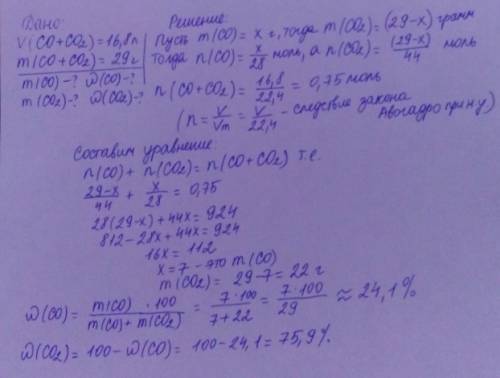 Дано:
V(CO+CO₂)=16,8л
m(CO+CO₂)=29г
m(CO)-? ω(CO)-?
m(CO₂)-? ω(CO₂)-?
Решение:
Пусть m(CO)=x г, тогда m(CO₂)=(29-x) грамм
Тогда n(CO)=x/28 моль, а n(CO₂)=(29-x)/44 моль
n(CO+CO₂)=16,8/22,4=0,75 моль
(n=V/Vm=V/22,4 - следствие закона
Авогадро при н.у)
Составим уравнение:
n(CO)+n(CO₂)=n(CO+CO₂) т.е.
29-x/44 + x/28 = 0,75
28(29-x)+44x=924
812-28x+44x=924
16x=112
x=7 - это m(CO)
m(CO₂)= 29-7=22 г
ω(CO)= m(CO)·100/m(CO)+m(CO₂) = 7·100/7+22 = 7·100/29 ≈ 24,1%
ω(CO₂)=100-ω(CO)= 100-24,1=75,9%